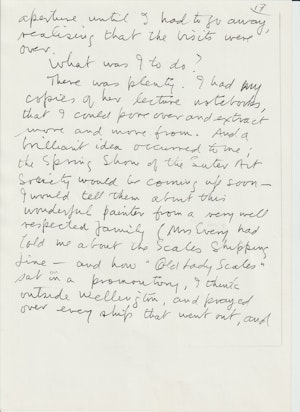 17
aperture until I had to go away,
realising that the visits were
over.
What was I to do?
There was plenty. I had my
copies of her lecture notebooks,
that I could pore over and extract
more and more from. And a
brilliant idea occurred to me;
the Spring Show of the Suter Art
Society would be coming up soon —
I would tell them about this
wonderful painter from a very well
respected family (Mrs Every had
told me about the Scales Shipping
Line — and how "Old Lady Scales"
sat in a promontory, I think
outside Wellington, and prayed
over every ship that went out, and